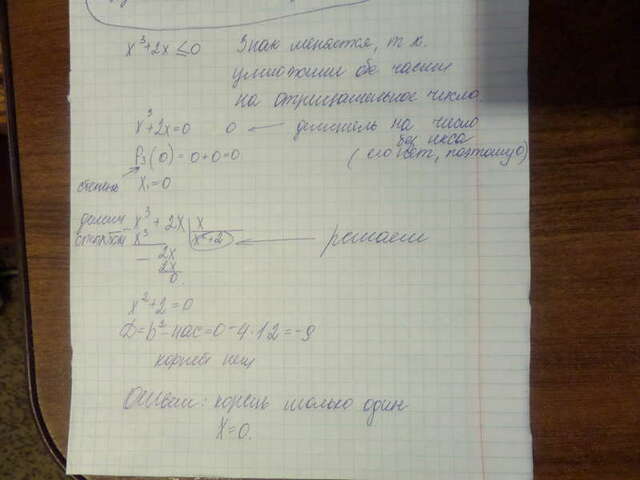 x³+2x≤0 Знак меняется, т к.
умножили обе части
на отрицательное число.
x³+2x=0 0 ← делитель на число
без икса
P₃(0)=0+0=0 (его нет, поэтому 0)
степень
x₁=0
делим x³+2x | x
столбиком x³ x²+2 ← решаем
− 2x
2x
0.
x²+2=0
D=b²-4ac=0-4·1·2=-8
корней нет
Ответ: корень только один
x=0.